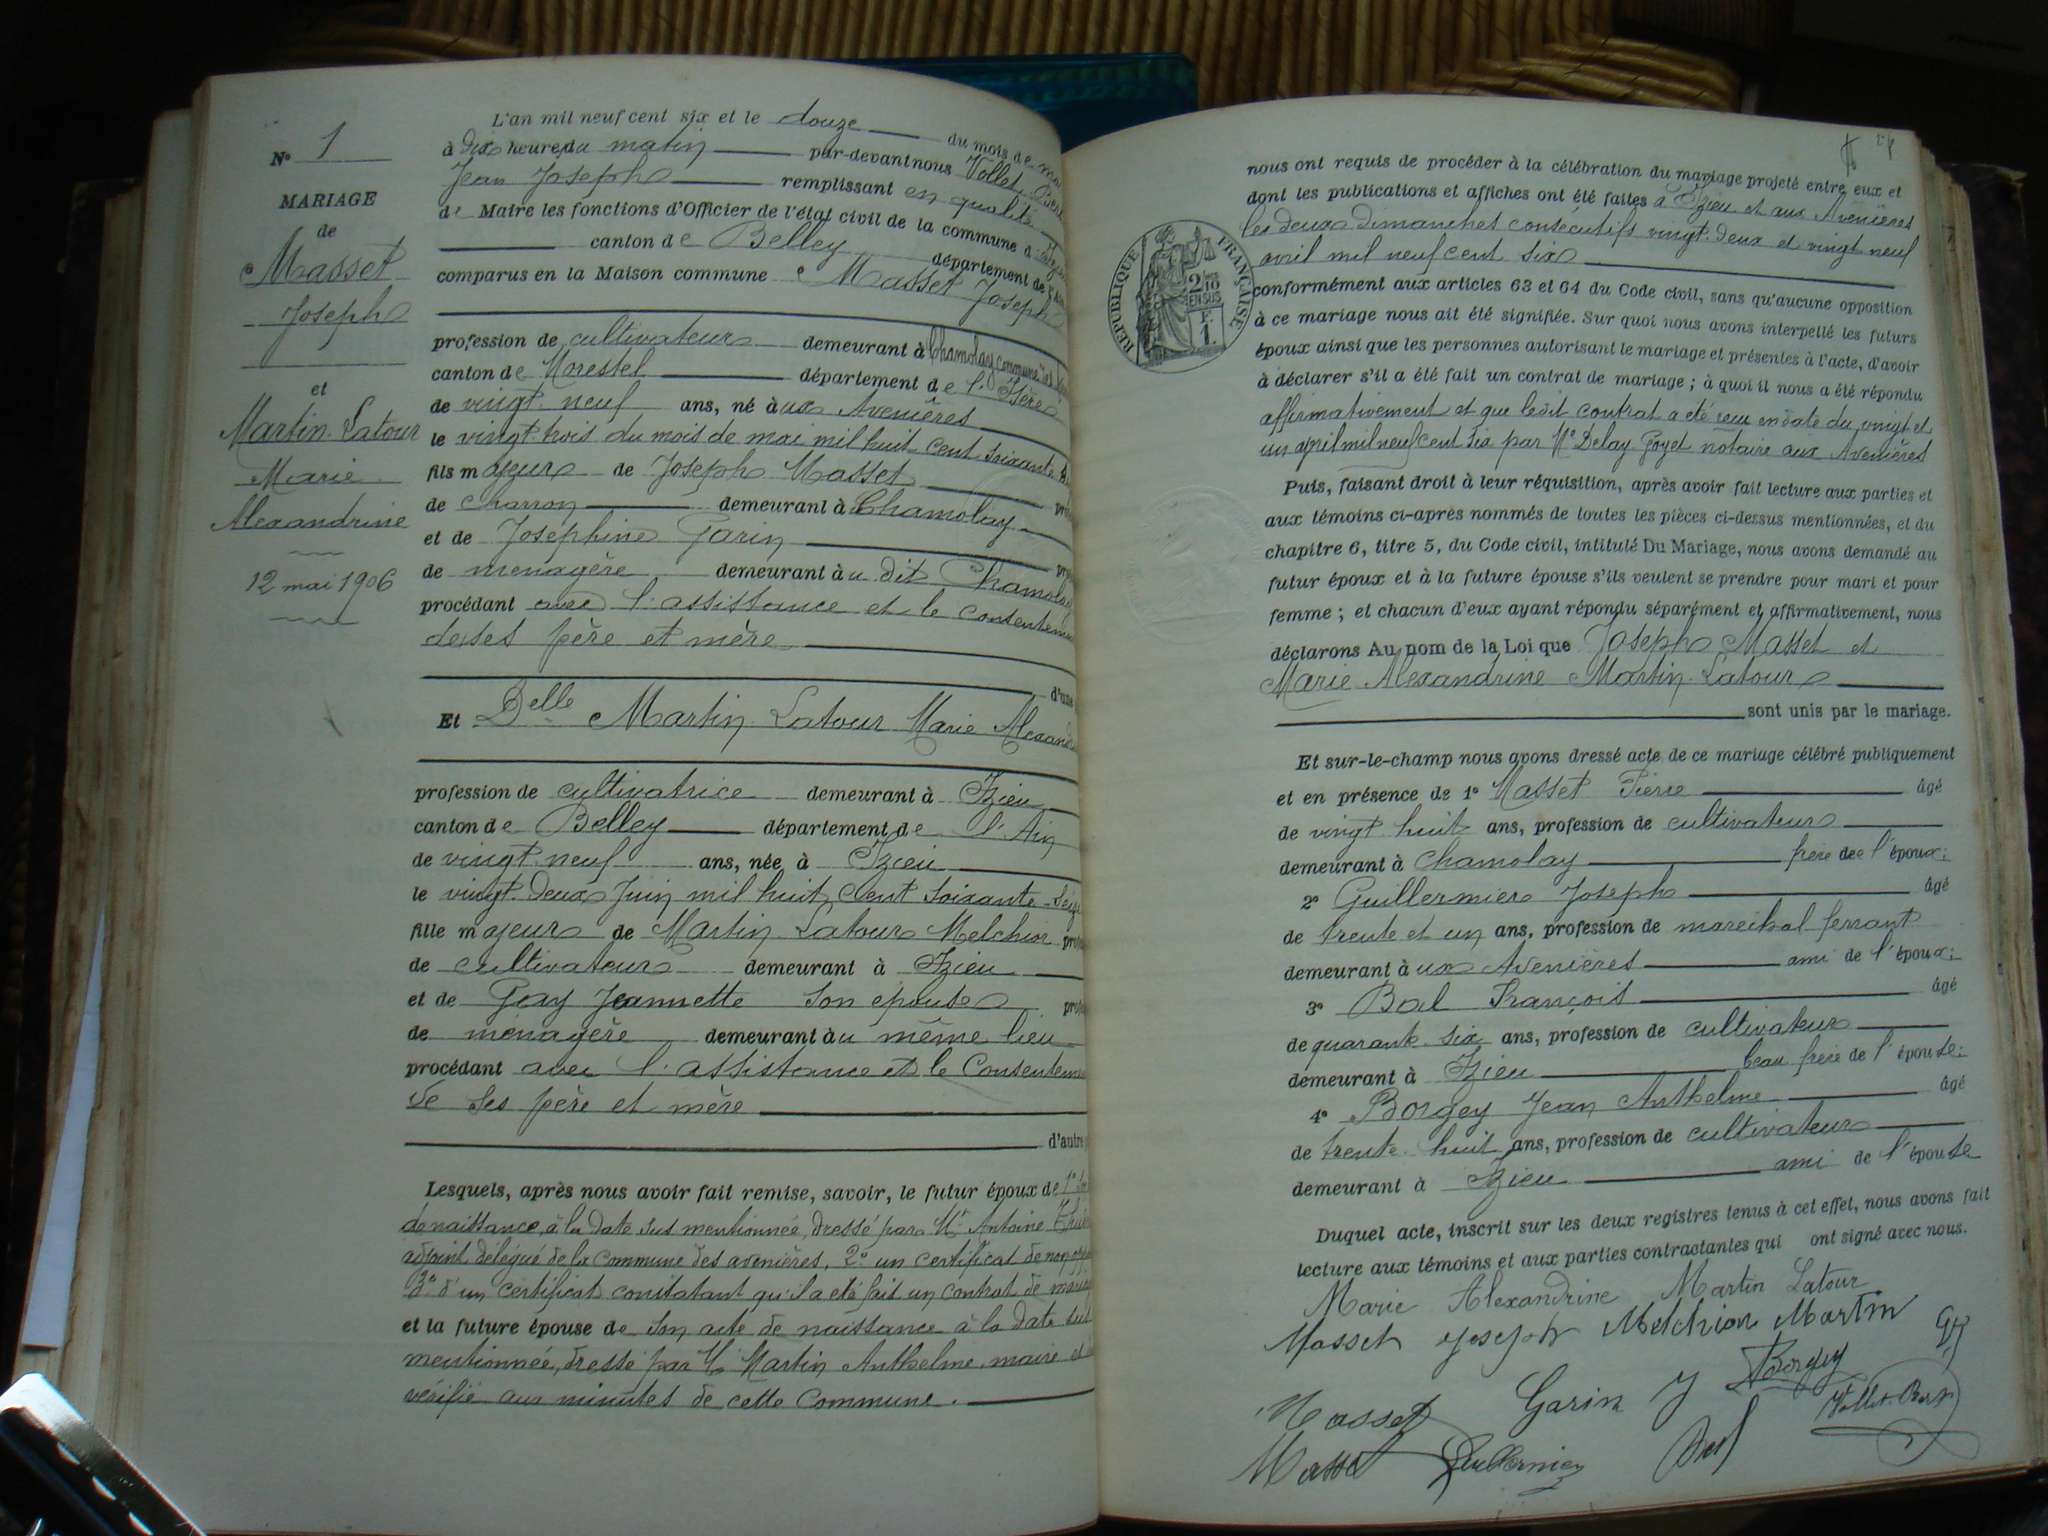 L'an mil neuf cent six et le douze du mois de
à dix heures du matin par-devant nous Vollet
Jean Joseph remplissant en qualité
de Maire les fonctions d'Officier de l'état civil de la commune d'
canton de Belley département de
comparus en la Maison commune Masset Joseph
profession de cultivateur demeurant à Chamolay commune
canton de Morestel département de l'Isère
de vingt neuf ans, né aux Avenières
le vingt trois du mois de mai mil huit cent soixante
fils majeur de Joseph Masset
de charron demeurant à Chamolay
et de Joséphine Garin
de ménagère demeurant au dit Chamolay
procédant avec l'assistance et le
de ses père et mère
d'une
Et Delle Martin Latour Marie
profession de cultivatrice demeurant à Izieu
canton de Belley département de l'Ain
de vingt neuf ans, née à Izieu
le vingt deux Juin mil huit cent soixante
fille majeure de Martin Latour Melchior
de cultivateur demeurant à Izieu
et de Goy Jeannette son épouse
de ménagère demeurant au même lieu
procédant avec l'assistance et le
de ses père et mère
d'autre
Lesquels, après nous avoir fait remise, savoir, le futur époux de 1°
de naissance, à la date sus mentionnée, dressé par Mr Antoine
adjoint délégué de la commune des avenières, 2° un certificat de
3° d'un certificat constatant qu'il a été fait un contrat de
et la future épouse de son acte de naissance à la date sus
mentionnée, dressé par M Martin Anthelme, maire et
vérifié aux minutes de cette commune.
N° 1
MARIAGE
de
Masset
Joseph
et
Martin Latour
Marie
Alexandrine
12 mai 1906
nous ont requis de procéder à la célébration du mariage projeté entre eux et
dont les publications et affiches ont été faites à Izieu et aux Avenières
les deux dimanches consécutifs vingt deux et vingt neuf
avril mil neuf cent six
RÉPUBLIQUE FRANÇAISE
2/10
EN SUS
F.
1.
conformément aux articles 63 et 64 du Code civil, sans qu'aucune opposition
à ce mariage nous ait été signifiée. Sur quoi nous avons interpellé les futurs
époux ainsi que les personnes autorisant le mariage et présentes à l'acte, d'avoir
à déclarer s'il a été fait un contrat de mariage ; à quoi il nous a été répondu
affirmativement et que ledit contrat a été reçu en date du vingt et
un avril mil neuf cent six par Me Delay Goyet notaire aux Avenières
Puis, faisant droit à leur réquisition, après avoir fait lecture aux parties et
aux témoins ci-après nommés de toutes les pièces ci-dessus mentionnées, et du
chapitre 6, titre 5, du Code civil, intitulé Du Mariage, nous avons demandé au
futur époux et à la future épouse s'ils veulent se prendre pour mari et pour
femme ; et chacun d'eux ayant répondu séparément et affirmativement, nous
déclarons Au nom de la Loi que Joseph Masset et
Marie Alexandrine Martin Latour
sont unis par le mariage.
Et sur-le-champ nous avons dressé acte de ce mariage célébré publiquement
et en présence de 1° Masset Pierre âgé
de vingt huit ans, profession de cultivateur
demeurant à Chamolay frère de l'époux;
2° Guillermier Joseph âgé
de trente et un ans, profession de maréchal ferrant
demeurant aux Avenières ami de l'époux;
3° Bal François âgé
de quarante six ans, profession de cultivateur
demeurant à Izieu beau frère de l'épouse;
4° Borgey Jean Anthelme âgé
de trente huit ans, profession de cultivateur
demeurant à Izieu ami de l'épouse
Duquel acte, inscrit sur les deux registres tenus à cet effet, nous avons fait
lecture aux témoins et aux parties contractantes qui ont signé avec nous.
Marie Alexandrine Martin Latour
Masset Joseph Melchior Martin
Masset Garin J Borgey
Masset Guillermier Bal